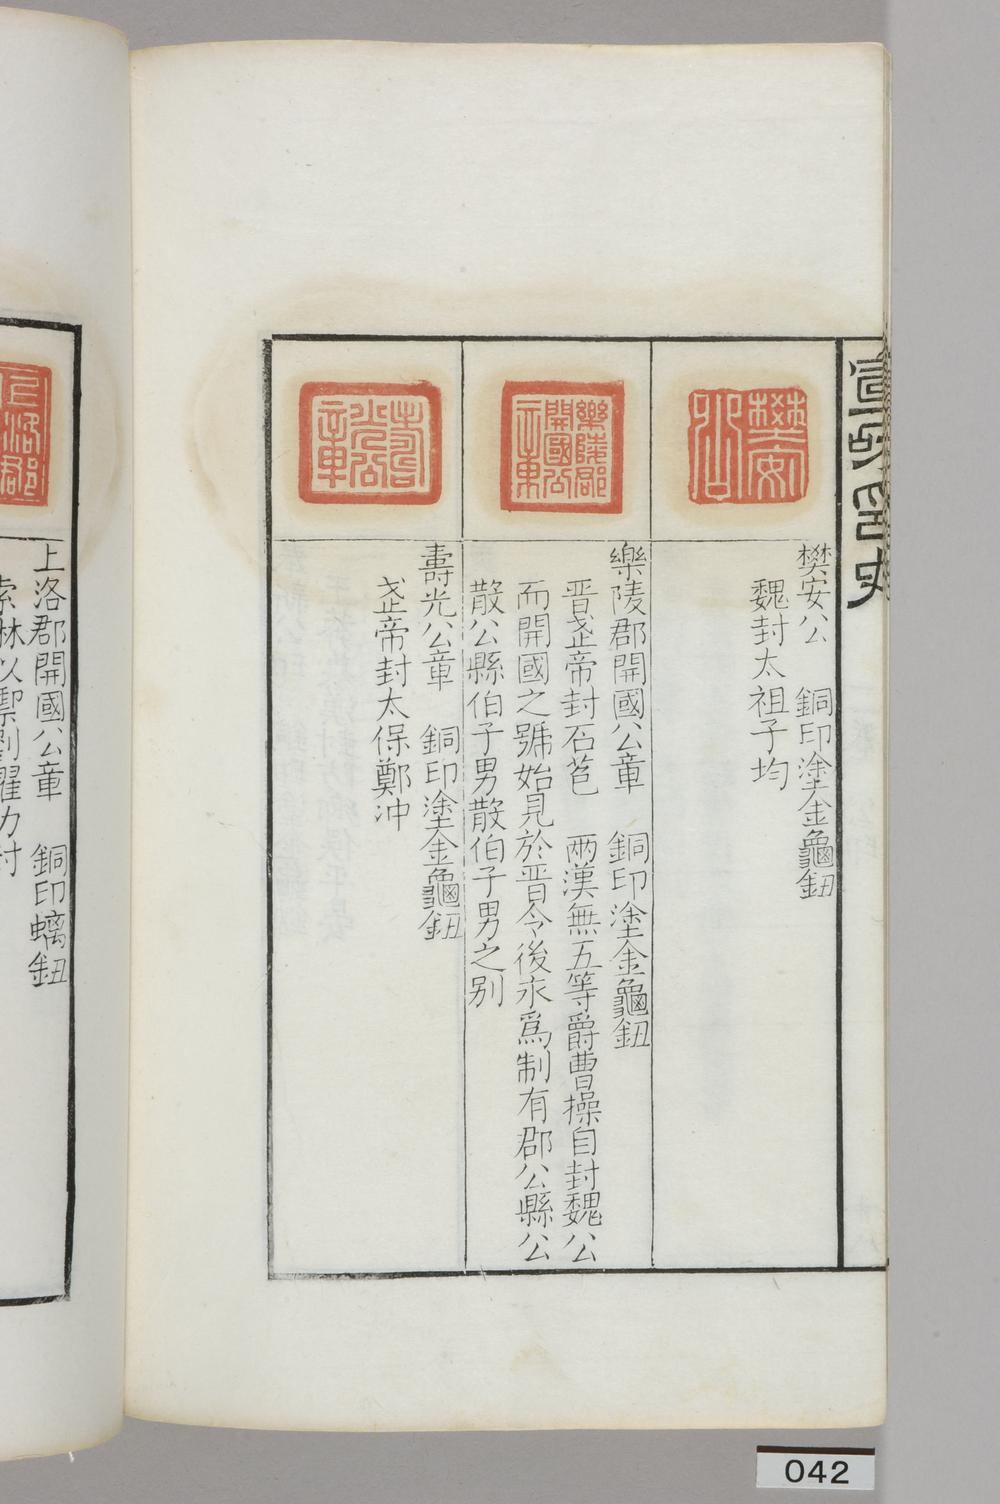 宣和印史
樊安公
樊安公　銅印塗金龜鈕
魏封太祖子均
樂陵郡開國公章
樂陵郡開國公章　銅印塗金龜鈕
晋武帝封石苞　兩漢無五等爵曹操自封魏公
而開國之號始見於晋令後永爲制有郡公縣公
散公縣伯子男散伯子男之别
壽光公章
壽光公章　銅印塗金龜鈕
武帝封太保鄭沖
上洛郡
上洛郡開國公章　銅印螭鈕
索綝以禦劉曜力封
042